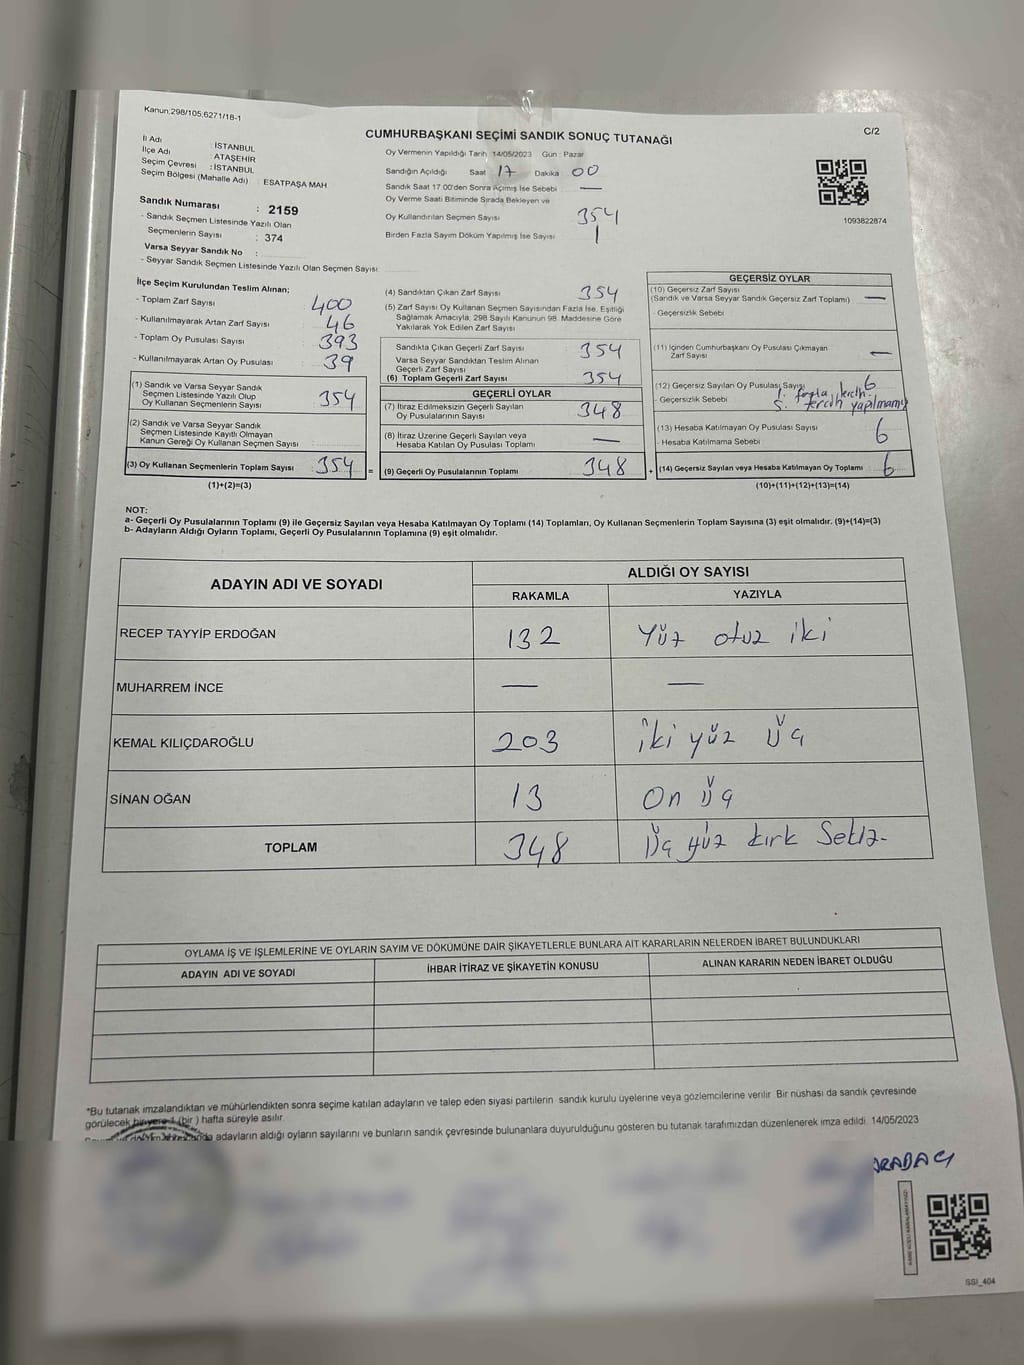 Kanun:298/105,6271/18-1
C/2
CUMHURBAŞKANI SEÇİMİ SANDIK SONUÇ TUTANAĞI
İl Adı : İSTANBUL
İlçe Adı : ATAŞEHİR
Seçim Çevresi : İSTANBUL
Seçim Bölgesi (Mahalle Adı) : ESATPAŞA MAH
Sandık Numarası : 2159
- Sandık Seçmen Listesinde Yazılı Olan
Seçmenlerin Sayısı : 374
Varsa Seyyar Sandık No :
- Seyyar Sandık Seçmen Listesinde Yazılı Olan Seçmen Sayısı
Oy Vermenin Yapıldığı Tarih 14/05/2023 Gün : Pazar
Sandığın Açıldığı Saat 17 Dakika 00
Sandık Saat 17.00'den Sonra Açılmış İse Sebebi —
Oy Verme Saati Bitiminde Sırada Bekleyen ve
Oy Kullandırılan Seçmen Sayısı 354
Birden Fazla Sayım Döküm Yapılmış İse Sayısı 1
1093822874
İlçe Seçim Kurulundan Teslim Alınan;
- Toplam Zarf Sayısı 400
- Kullanılmayarak Artan Zarf Sayısı 46
- Toplam Oy Pusulası Sayısı 393
- Kullanılmayarak Artan Oy Pusulası 39
(1) Sandık ve Varsa Seyyar Sandık
Seçmen Listesinde Yazılı Olup
Oy Kullanan Seçmenlerin Sayısı 354
(2) Sandık ve Varsa Seyyar Sandık
Seçmen Listesinde Kayıtlı Olmayan
Kanun Gereği Oy Kullanan Seçmen Sayısı
(3) Oy Kullanan Seçmenlerin Toplam Sayısı 354 =
(1)+(2)=(3)
(4) Sandıktan Çıkan Zarf Sayısı 354
(5) Zarf Sayısı Oy Kullanan Seçmen Sayısından Fazla İse, Eşitliği
Sağlamak Amacıyla, 298 Sayılı Kanunun 98. Maddesine Göre
Yakılarak Yok Edilen Zarf Sayısı
Sandıkta Çıkan Geçerli Zarf Sayısı 354
Varsa Seyyar Sandıktan Teslim Alınan
Geçerli Zarf Sayısı
(6) Toplam Geçerli Zarf Sayısı 354
GEÇERLİ OYLAR
(7) İtiraz Edilmeksizin Geçerli Sayılan
Oy Pusulalarının Sayısı 348
(8) İtiraz Üzerine Geçerli Sayılan veya
Hesaba Katılan Oy Pusulası Toplamı —
(9) Geçerli Oy Pusulalarının Toplamı 348 +
GEÇERSİZ OYLAR
(10) Geçersiz Zarf Sayısı
(Sandık ve Varsa Seyyar Sandık Geçersiz Zarf Toplamı) —
- Geçersizlik Sebebi
(11) İçinden Cumhurbaşkanı Oy Pusulası Çıkmayan
Zarf Sayısı —
(12) Geçersiz Sayılan Oy Pusulası Sayısı 6
- Geçersizlik Sebebi 1. fazla tercih
5. tercih yapılmamış
(13) Hesaba Katılmayan Oy Pusulası Sayısı 6
- Hesaba Katılmama Sebebi
(14) Geçersiz Sayılan veya Hesaba Katılmayan Oy Toplamı 6
(10)+(11)+(12)+(13)=(14)
NOT:
a- Geçerli Oy Pusulalarının Toplamı (9) ile Geçersiz Sayılan veya Hesaba Katılmayan Oy Toplamı (14) Toplamları, Oy Kullanan Seçmenlerin Toplam Sayısına (3) eşit olmalıdır. (9)+(14)=(3)
b- Adayların Aldığı Oyların Toplamı, Geçerli Oy Pusulalarının Toplamına (9) eşit olmalıdır.
ADAYIN ADI VE SOYADI
ALDIĞI OY SAYISI
RAKAMLA YAZIYLA
RECEP TAYYİP ERDOĞAN 132 Yüz otuz iki
MUHARREM İNCE — —
KEMAL KILIÇDAROĞLU 203 iki yüz üç
SİNAN OĞAN 13 On üç
TOPLAM 348 Üç yüz kırk Sekiz-
OYLAMA İŞ VE İŞLEMLERİNE VE OYLARIN SAYIM VE DÖKÜMÜNE DAİR ŞİKAYETLERLE BUNLARA AİT KARARLARIN NELERDEN İBARET BULUNDUKLARI
ADAYIN ADI VE SOYADI İHBAR İTİRAZ VE ŞİKAYETİN KONUSU ALINAN KARARIN NEDEN İBARET OLDUĞU
*Bu tutanak imzalandıktan ve mühürlendikten sonra seçime katılan adayların ve talep eden siyasi partilerin sandık kurulu üyelerine veya gözlemcilerine verilir. Bir nüshası da sandık çevresinde
görülecek bir yere 1 (bir ) hafta süreyle asılır.
adayların aldığı oyların sayılarını ve bunların sandık çevresinde bulunanlara duyurulduğunu gösteren bu tutanak tarafımızdan düzenlenerek imza edildi. 14/05/2023
SSI_404